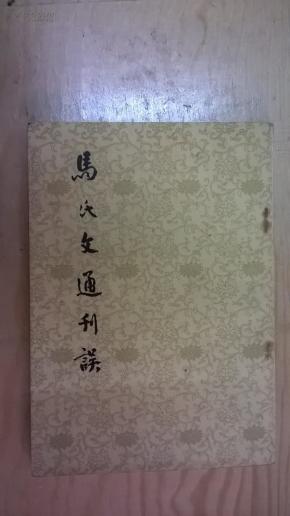 馬氏文通刊誤